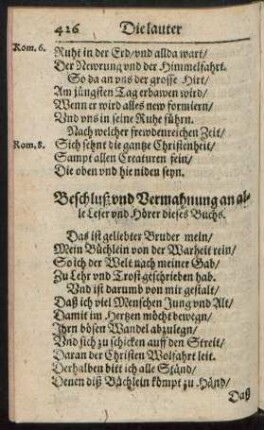 426 Die lauter
Rom. 6. Ruht in der Erd/ vnd allda wart/
Der Newrung vnd der Himmelfahrt.
So da an vns der grosse Hirt/
Am jüngsten Tag erbawen wird/
Wenn er wird alles new formiern/
Vnd vns in seine Ruhe führn.
Nach welcher frewdenreichen Zeit/
Rom. 8. Sich sehnt die gantze Christenheit/
Sampt allen Creaturen fein/
Die oben vnd hieniden seyn.
Beschluß vnd Vermahnung an al-
le Leser vnd Hörer dieses Buchs.
Das ist geliebter Bruder mein/
Mein Büchlein von der Warheit rein/
So ich der Welt nach meiner Gab/
Zu Lehr vnd Trost geschrieben hab.
Vnd ist darumb von mir gestalt/
Daß ich viel Menschen Jung vnd Alt/
Damit im Hertzen möcht bewegn/
Ihrn bösen Wandel abzulegn/
Vnd sich zu schicken auff den Streit/
Daran der Christen Wolfahrt leit.
Derhalben bitt ich alle Ständ/
Denen diß Büchlein kömpt zu Händ/
Daß